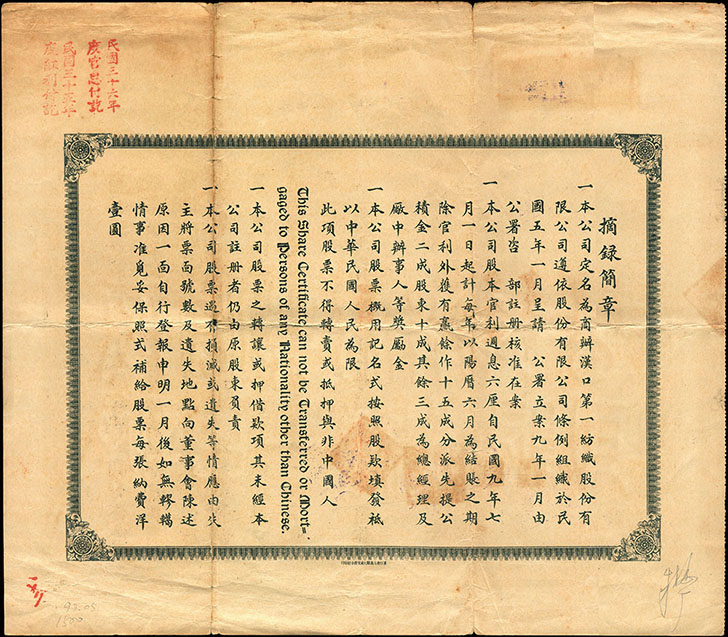 民國三十六年
度官息付訖
民國三十五年
度股利付訖
摘録簡章
一本公司定名為商辦漢口第一紡織股份有
限公司遵依股份有限公司條例組織於民
國五年一月呈請 公署立案九年一月由
公署咨 部註册核准在案
一本公司股本官利週息六厘自民國九年七
月一日起計每年以陽曆六月為結賬之期
除官利外獲有羸餘作十五成分派先提公
積金二成股東十成其餘三成為總經理及
厰中辦事人等奬勵金
一本公司股票概用記名式按照股欵填發祇
以中華民國人民為限
此項股票不得轉賣或抵押與非中國人
This Share Certificate, can not be Transferred or Mort=
gaged to Persons of any Nationality other than Chinese.
一本公司股票之轉讓或押借欵項其未經本
公司註册者仍由原股東負責
一本公司股票遇有損滅或遺失等情應由失
主將票面號數及遺失地點向董事會陳述
原因一面自行登報申明一月後如無轇轕
情事准覓妥保照式補給股票每張納費洋
壹圓
1500